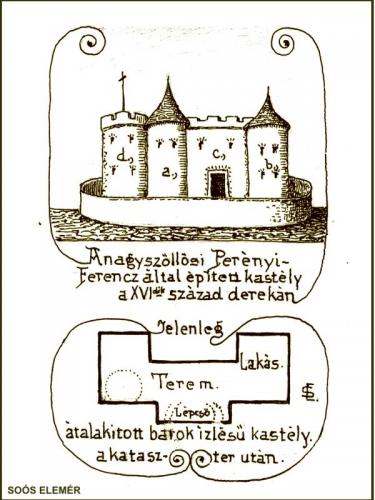 d.,
a.,
c.,
b.,
A nagyszőllősi Perényi-
Ferencz által épitett kastély
a XVIdik század derekán
Jelenleg
Lakás.
Terem.
Lépcső
átalakitott barok izlésű kastély.
a katasz- ter után.
SOÓS ELEMÉR